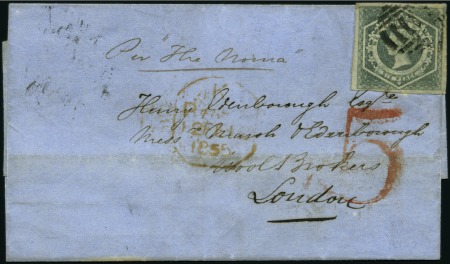 Per "The Norna"
Henry Edenborough Esqre
Messrs & Edenborough
Wool Brokers
London
5